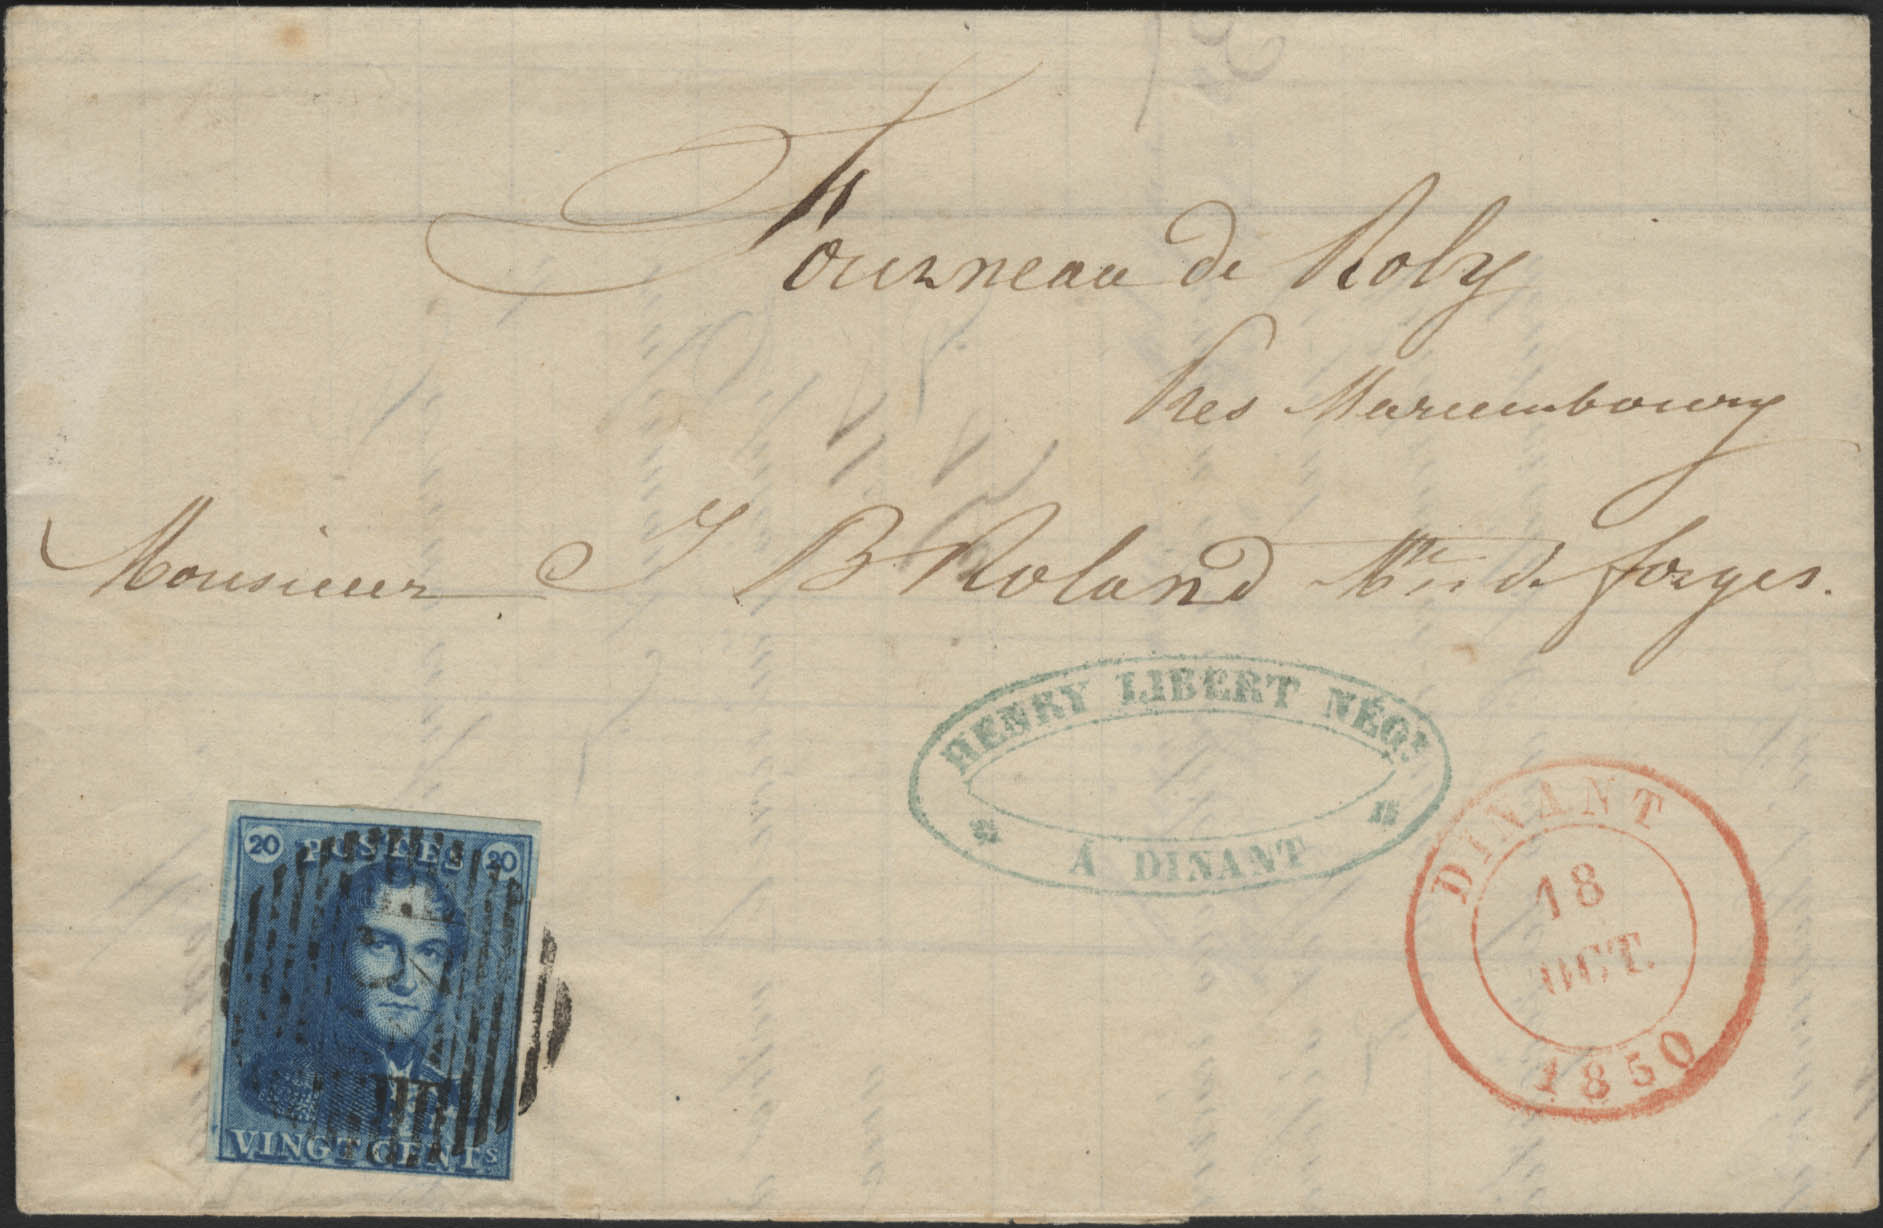 Fourneau de Roly
Pres Mariembourg
Monsieur J B Roland Mtre de forges.
HENRY LIBERT NÉGT
À DINANT
DINANT
18
OCT.
1850
20 POSTES 20
VINGT CENTS